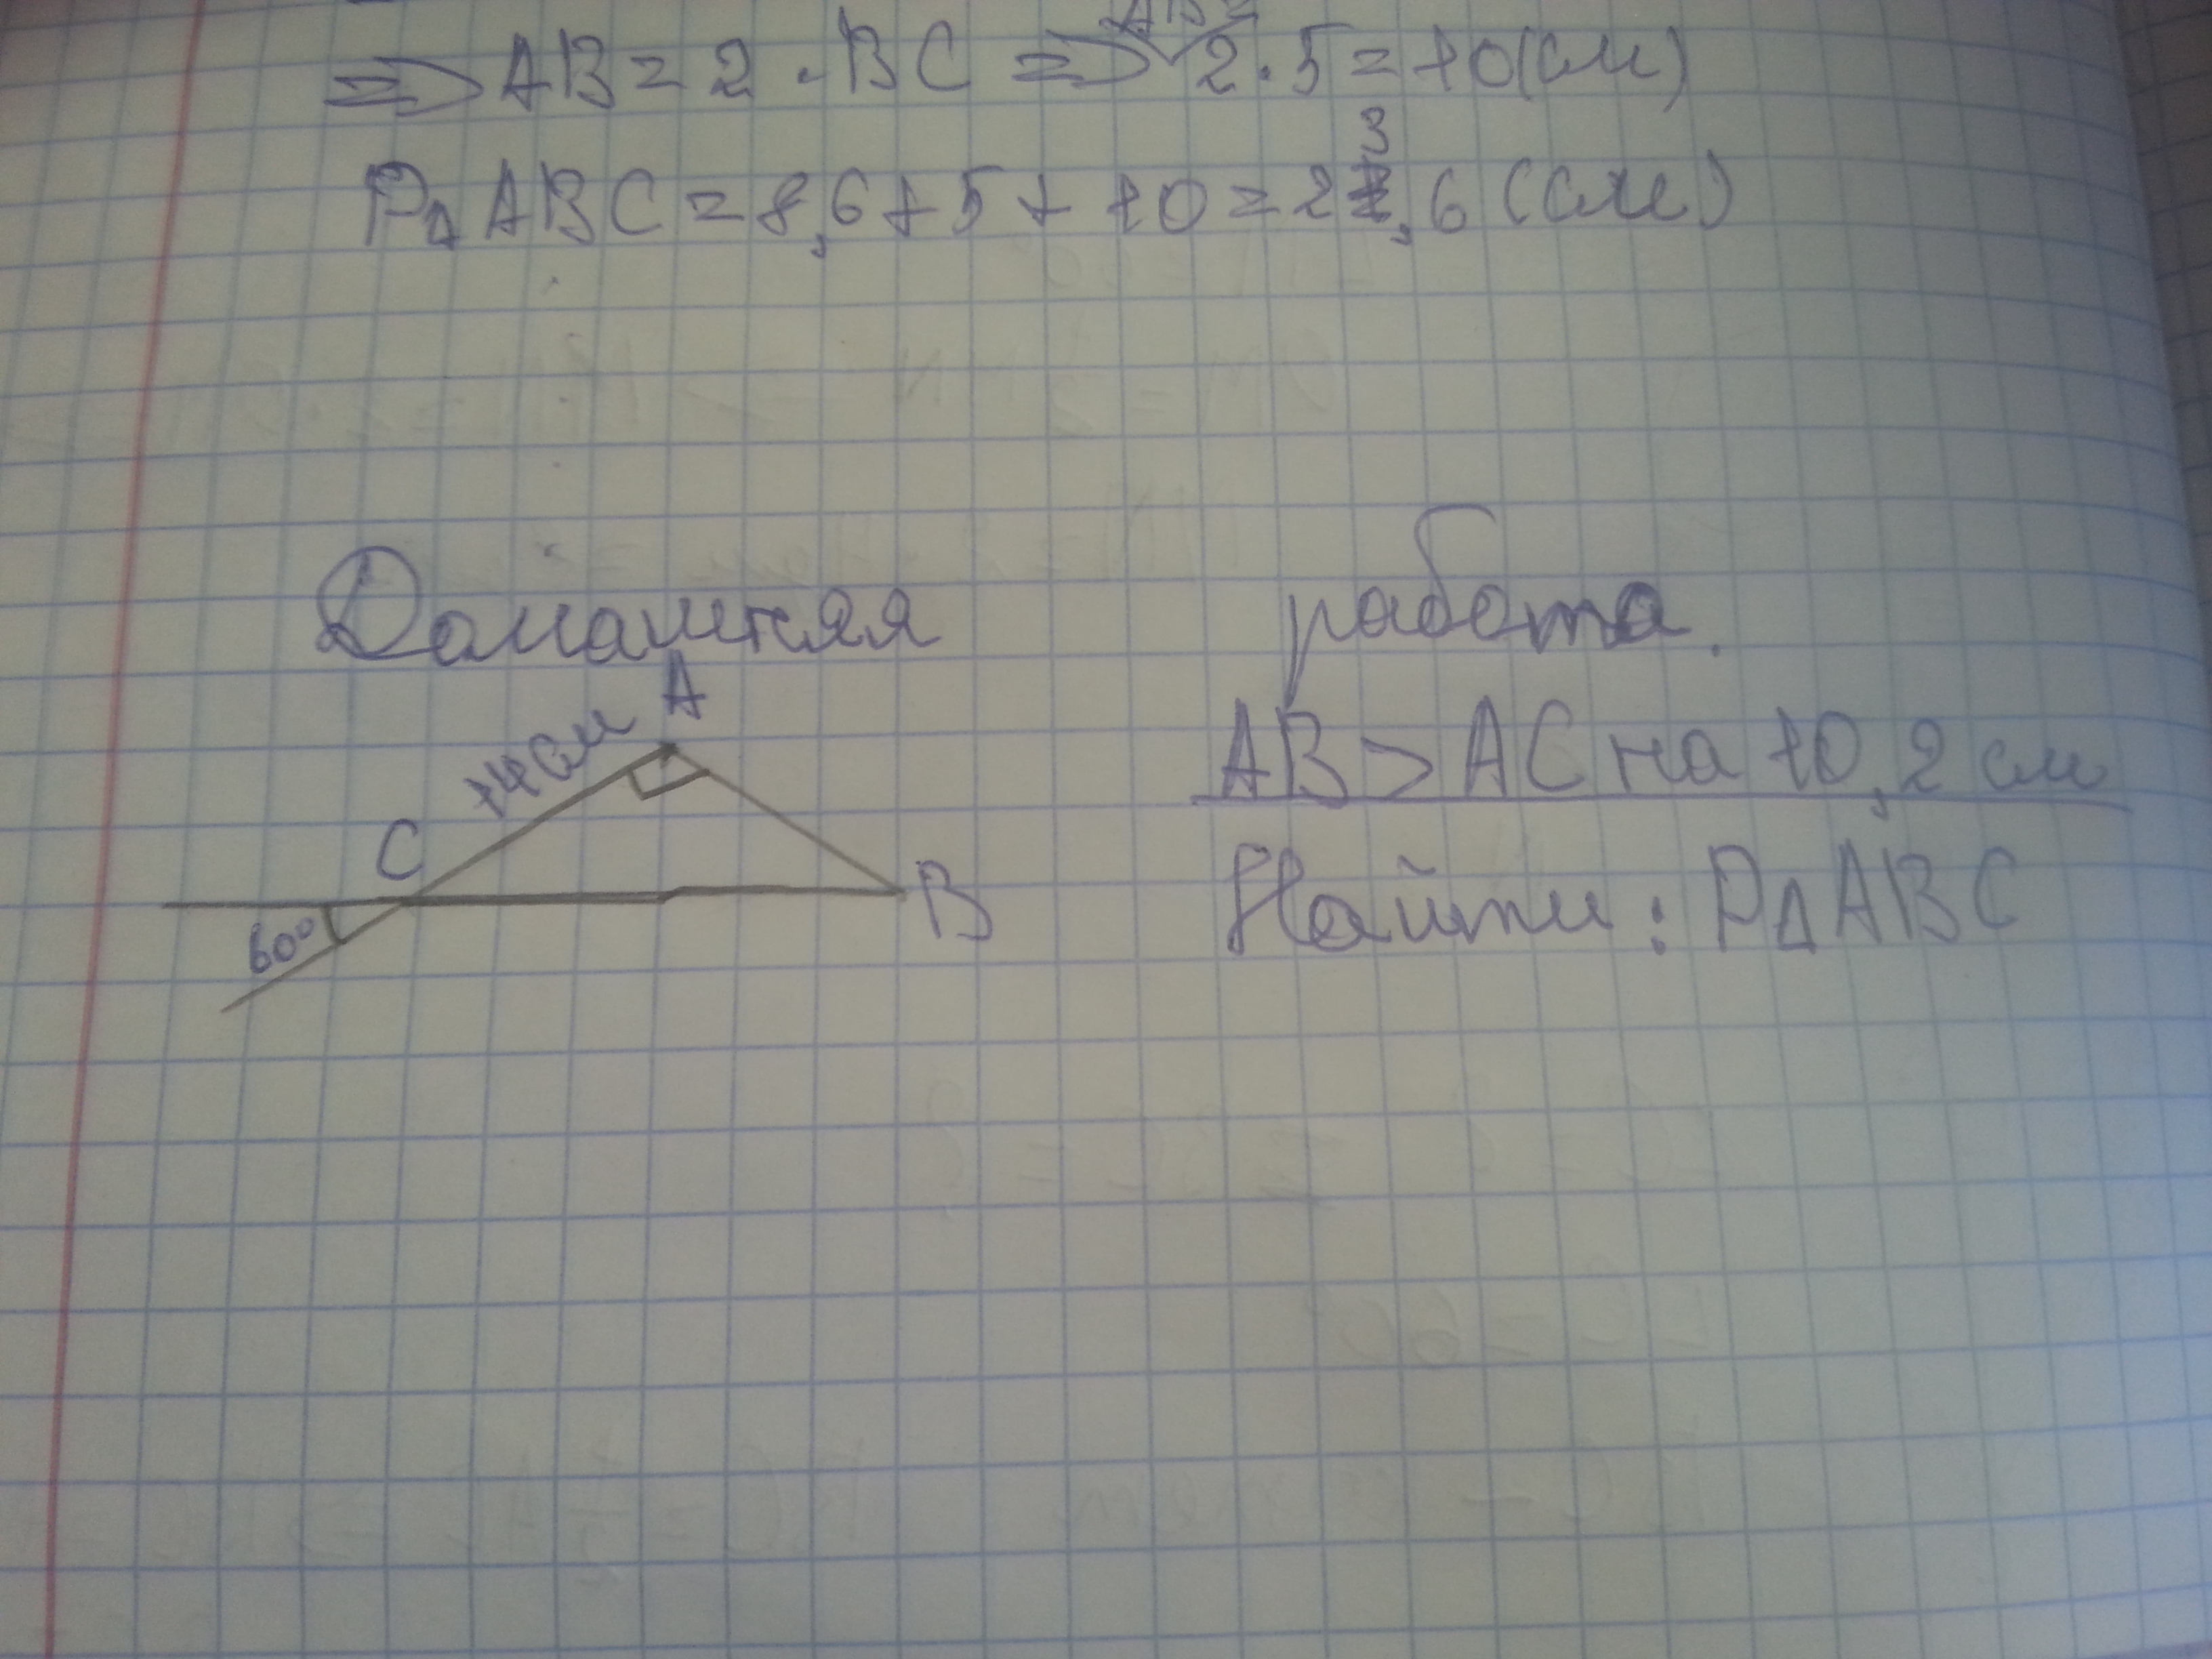 ⇒ AB = 2 · BC ⇒ AB = 2 · 5 = 10 (см)
P△ABC = 8,6 + 5 + 10 = 23,6 (см)
Домашняя работа.
A
14 см
C
60°
B
AB > AC на 10,2 см
Найти: P△ABC